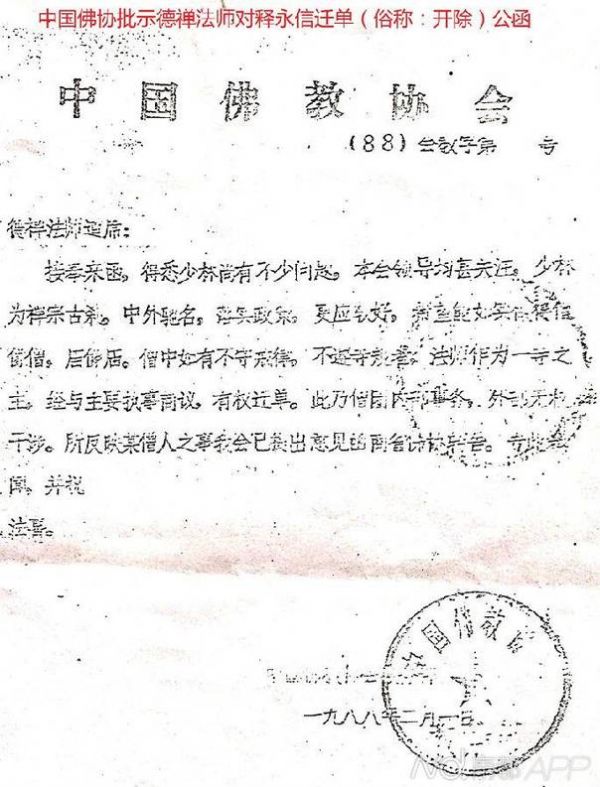 中国佛协批示德禅法师对释永信迁单（俗称：开除）公函
中国佛教协会
（88）会教字第 号
德禅法师道席：
接奉来函，得悉少林尚有不少问题，本会领导均甚关注。少林
为禅宗古刹，中外驰名，落实政策，更应
僧，居佛庙。僧中如有不守戒律，不遵寺规者，法师作为一寺之
主，经与主要执事商议，有权迁单。此乃僧团内部事务，外部无权
干涉。所反映某僧人之事我会已提出意见
闻，并祝
法喜。
中国佛教
一九八八年二月一日
APP